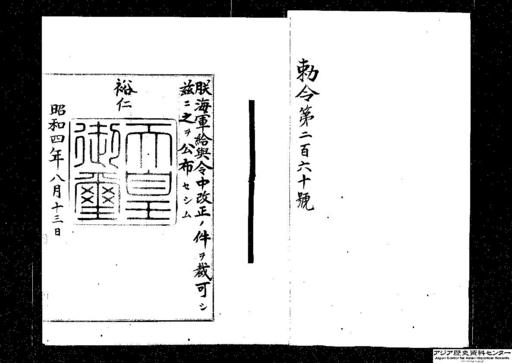 勅令第二百六十號
朕海軍給與令中改正ノ件ヲ裁可シ
玆ニ之ヲ公布セシム
裕仁
天皇
御璽
昭和四年八月十三日
アジア歴史資料センター
Japan Center for Asian Historical Records